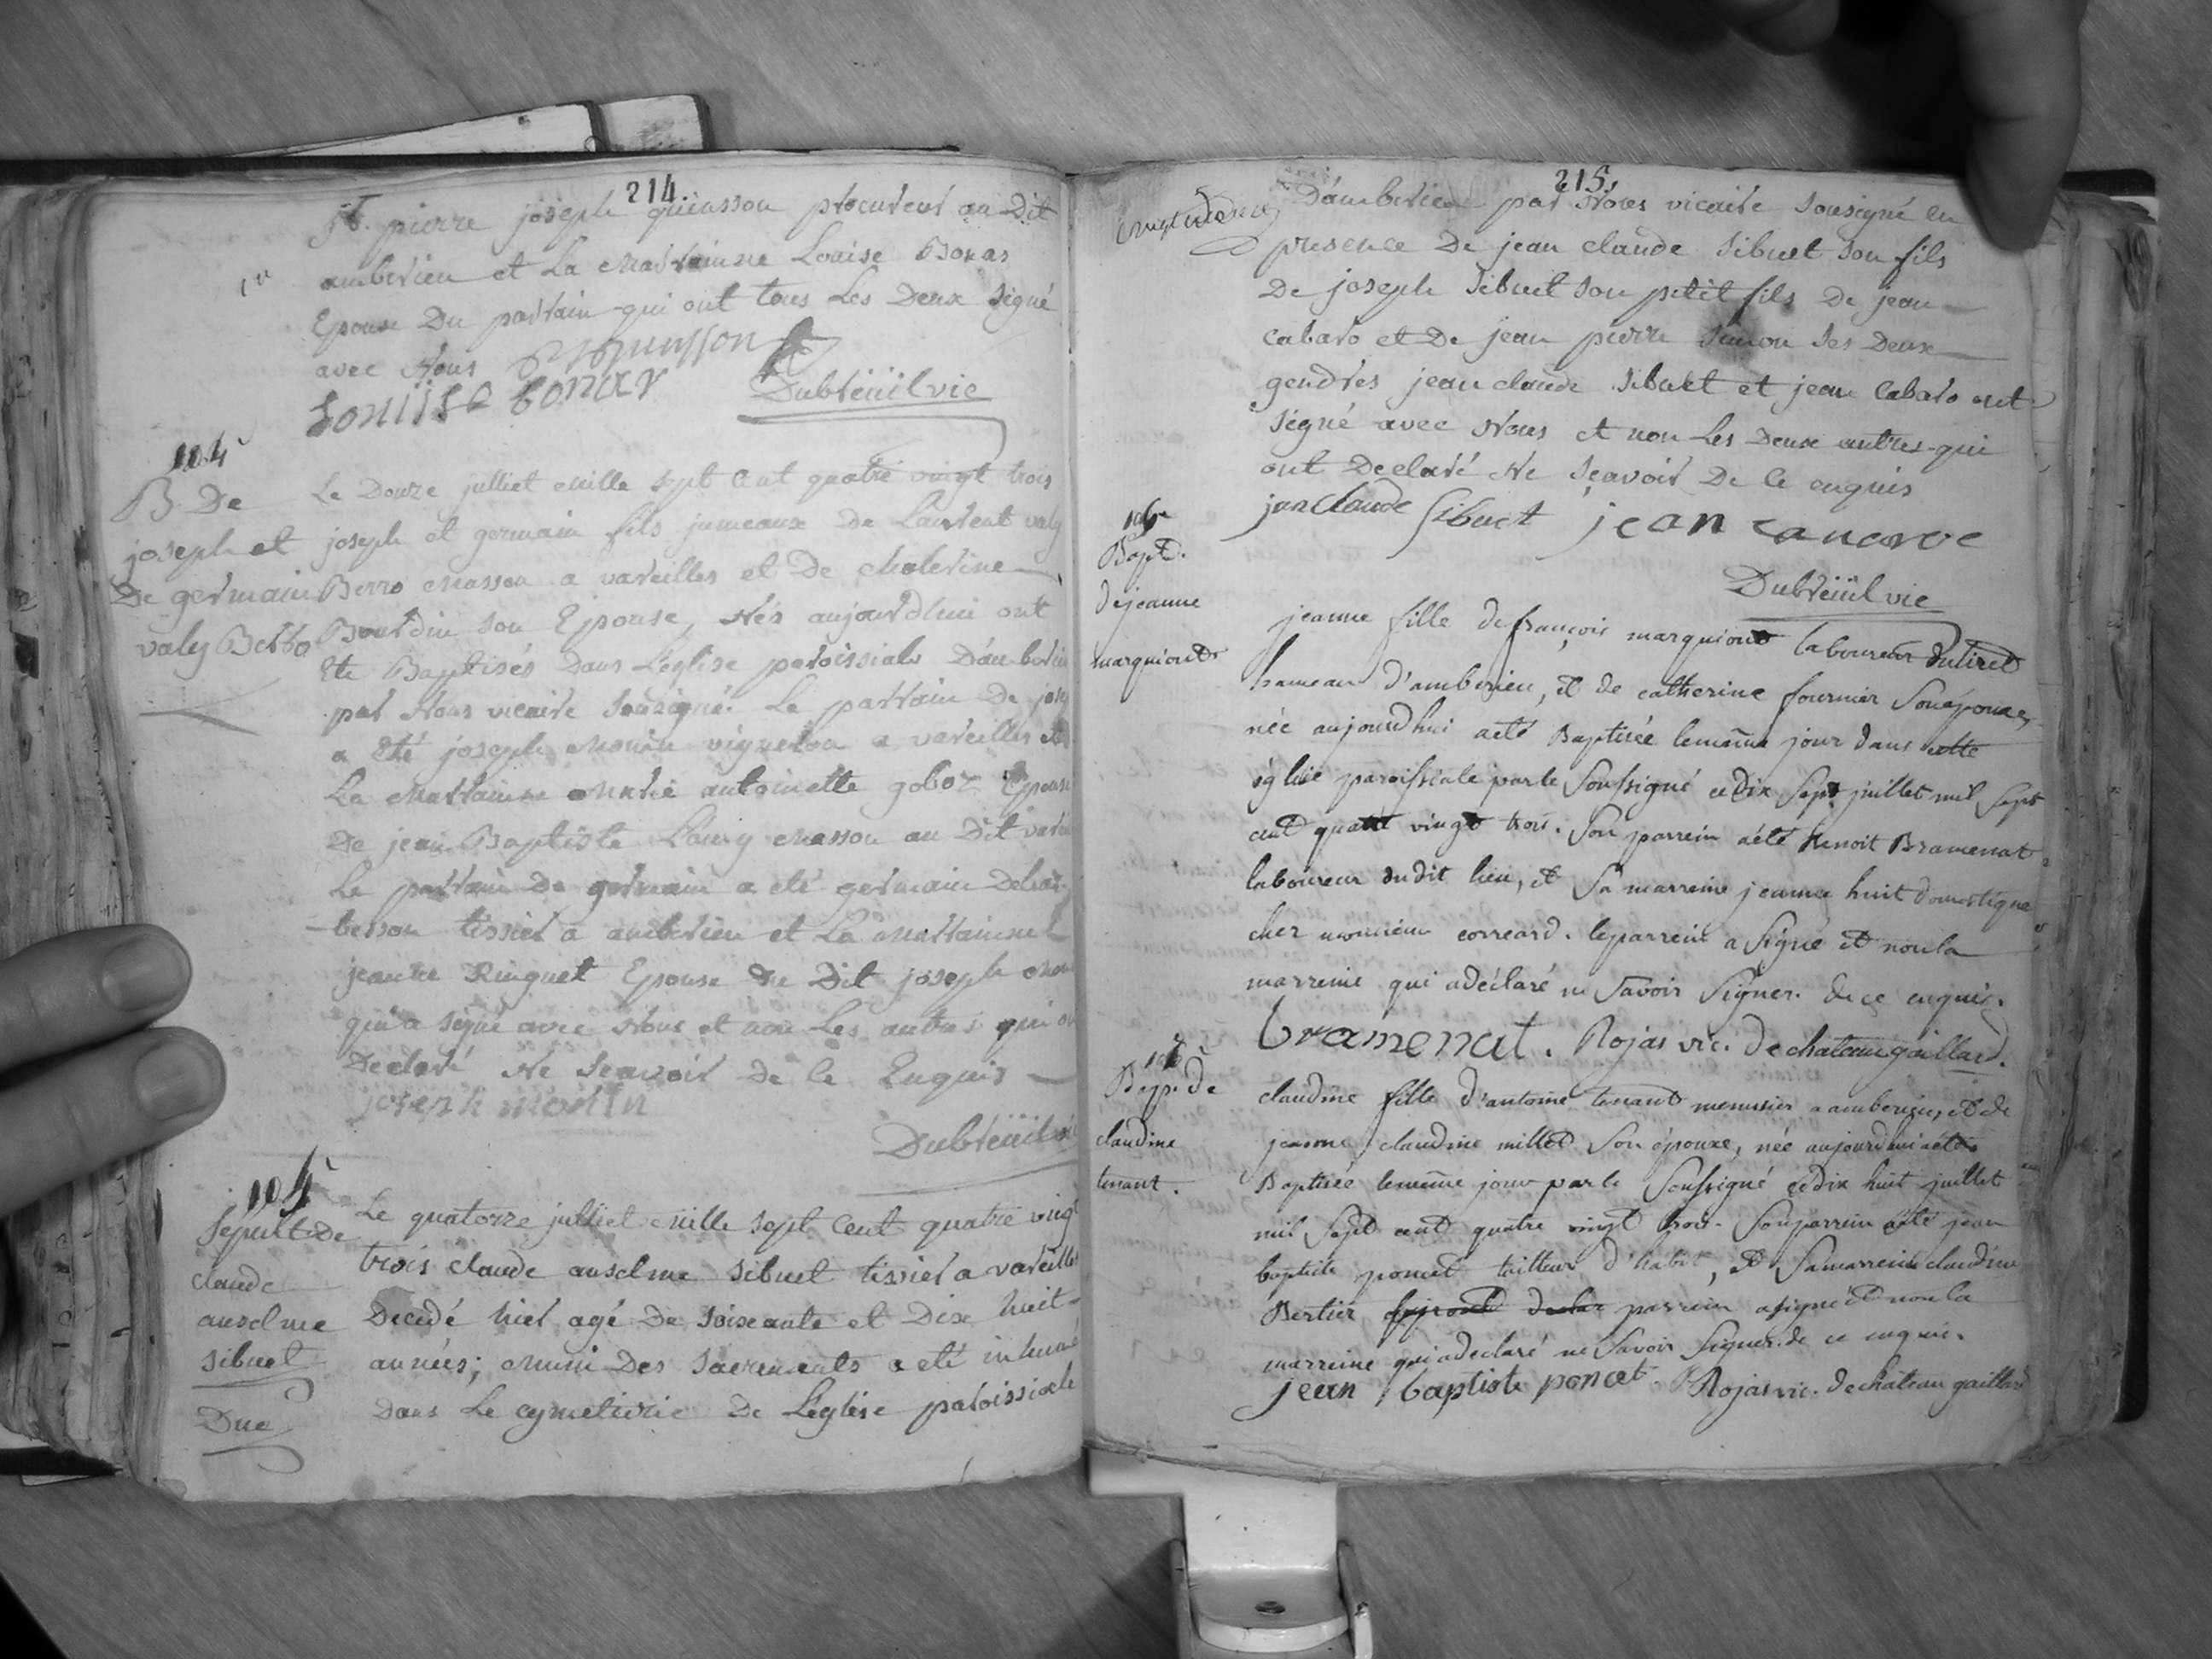 214.
Sr. pierre joseph quinsson procureur au Dit
amberieu et La Marrainne Louise Bonar
Epouse Du parrain qui ont tous Les Deux Signé
avec Nous
Louiise bonar Dubreüil vic
104
B. De
joseph et
De germain
valy Berro
Le Douze julliet Mille sept Cent quatre vingt trois
joseph et germain fils jumeaux de Laurent valy
Berro Masson a vareilles et De Catherine
Bourdin son Epouse, Nés aujourd'hui ont
Ete Baptisés Dans L'eglise paroissiale D'amberieu
par Nous vicaire Sousigné. Le parrain De
a Eté joseph Monin vigneron a vareilles et
La Marrainne Marie antoinette goboz Epouse
De jean Baptiste Masson au Dit
Le parrain De germain a eté germain
besson tissier a amberieu et La Marrainne
jeanne Ruiguet Epouse Du Dit joseph
qui a signé avec Nous et non Les autres qui
Declaré Ne Scavoir De Ce Enquis
joseph monin
Dubreüil
105
Sepult. De
claude
anselme
sibuet
Due
Le quatorze julliet Mille sept Cent quatre vingt
trois claude anselme sibuet tissier a vareilles
Decedé hier agé De soixante et Dix huit
années; Muni Des Sacrements a eté inhumé
Dans Le cymetiere De L'eglise paroissiale
215.
D'amberieu par Nous vicaire Sousigné en
presence De jean claude Sibuet son fils
De joseph Sibuet son petit fils De jean
cabaro et De jean pierre simon ses Deux
gendres jean claude Sibuet et jean Cabaro ont
signé avec Nous et non Les Deux autres qui
ont Declaré Ne Sçavoir De Ce enquis
jan claude sibuet jean
Dubreüil vic
Bapt.
de jeanne
marquiond
jeanne fille de françois marquiond laboureur
hameau d'amberieu, et de catherine fournier Son épouse,
née aujourdhui a eté Baptisée le même jour dans cette
église paroissiale par le Soussigné ce dix Sept juillet mil Sept
cent quatre vingt trois. Son parrein a été Benoit Bramenat
laboureur dudit lieu, et Sa marreine jeanne huit domestique
chez monsieur correard. le parrein a Signé et non la
marreine qui a déclaré ne Savoir Signer. de ce enquis.
bramenat. Rojas vic. de chateaugaillard.
Bap. de
claudine
tenant.
claudine fille d'antoine tenant menuisier a amberieu, et de
jeanne claudine millet Son épouse, née aujourdhui a été
Baptisée le même jour par le Soussigné ce dix huit juillet
mil Sept cent quatre vingt trois. Son parrein a été jean
baptiste poncet tailleur d'habit, et Sa marreine claudine
Bertier parrein a signé et non la
marreine qui a declaré ne Savoir Signer. de ce enquis.
jean baptiste poncet. Rojas vic. de chateau gaillard